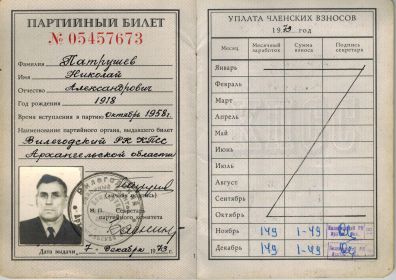 ПАРТИЙНЫЙ БИЛЕТ
№ 05457673
Фамилия Патрушев
Имя Николай
Отчество Александрович
Год рождения 1918
Время вступления в партию октябрь 1958 г.
Наименование партийного органа, выдавшего билет
Вилегодский РК КПСС
Архангельской области
(личная подпись)
М.П.
Секретарь
партийного комитета
Дата выдачи 7 декабря 1973 г.
УПЛАТА ЧЛЕНСКИХ ВЗНОСОВ
1973 год
Месяц Месячный заработок Сумма взноса Подпись секретаря
Январь
Февраль
Март
Апрель
Май
Июнь
Июль
Август
Сентябрь
Октябрь
Ноябрь 149 1-49
Декабрь 149 1-49